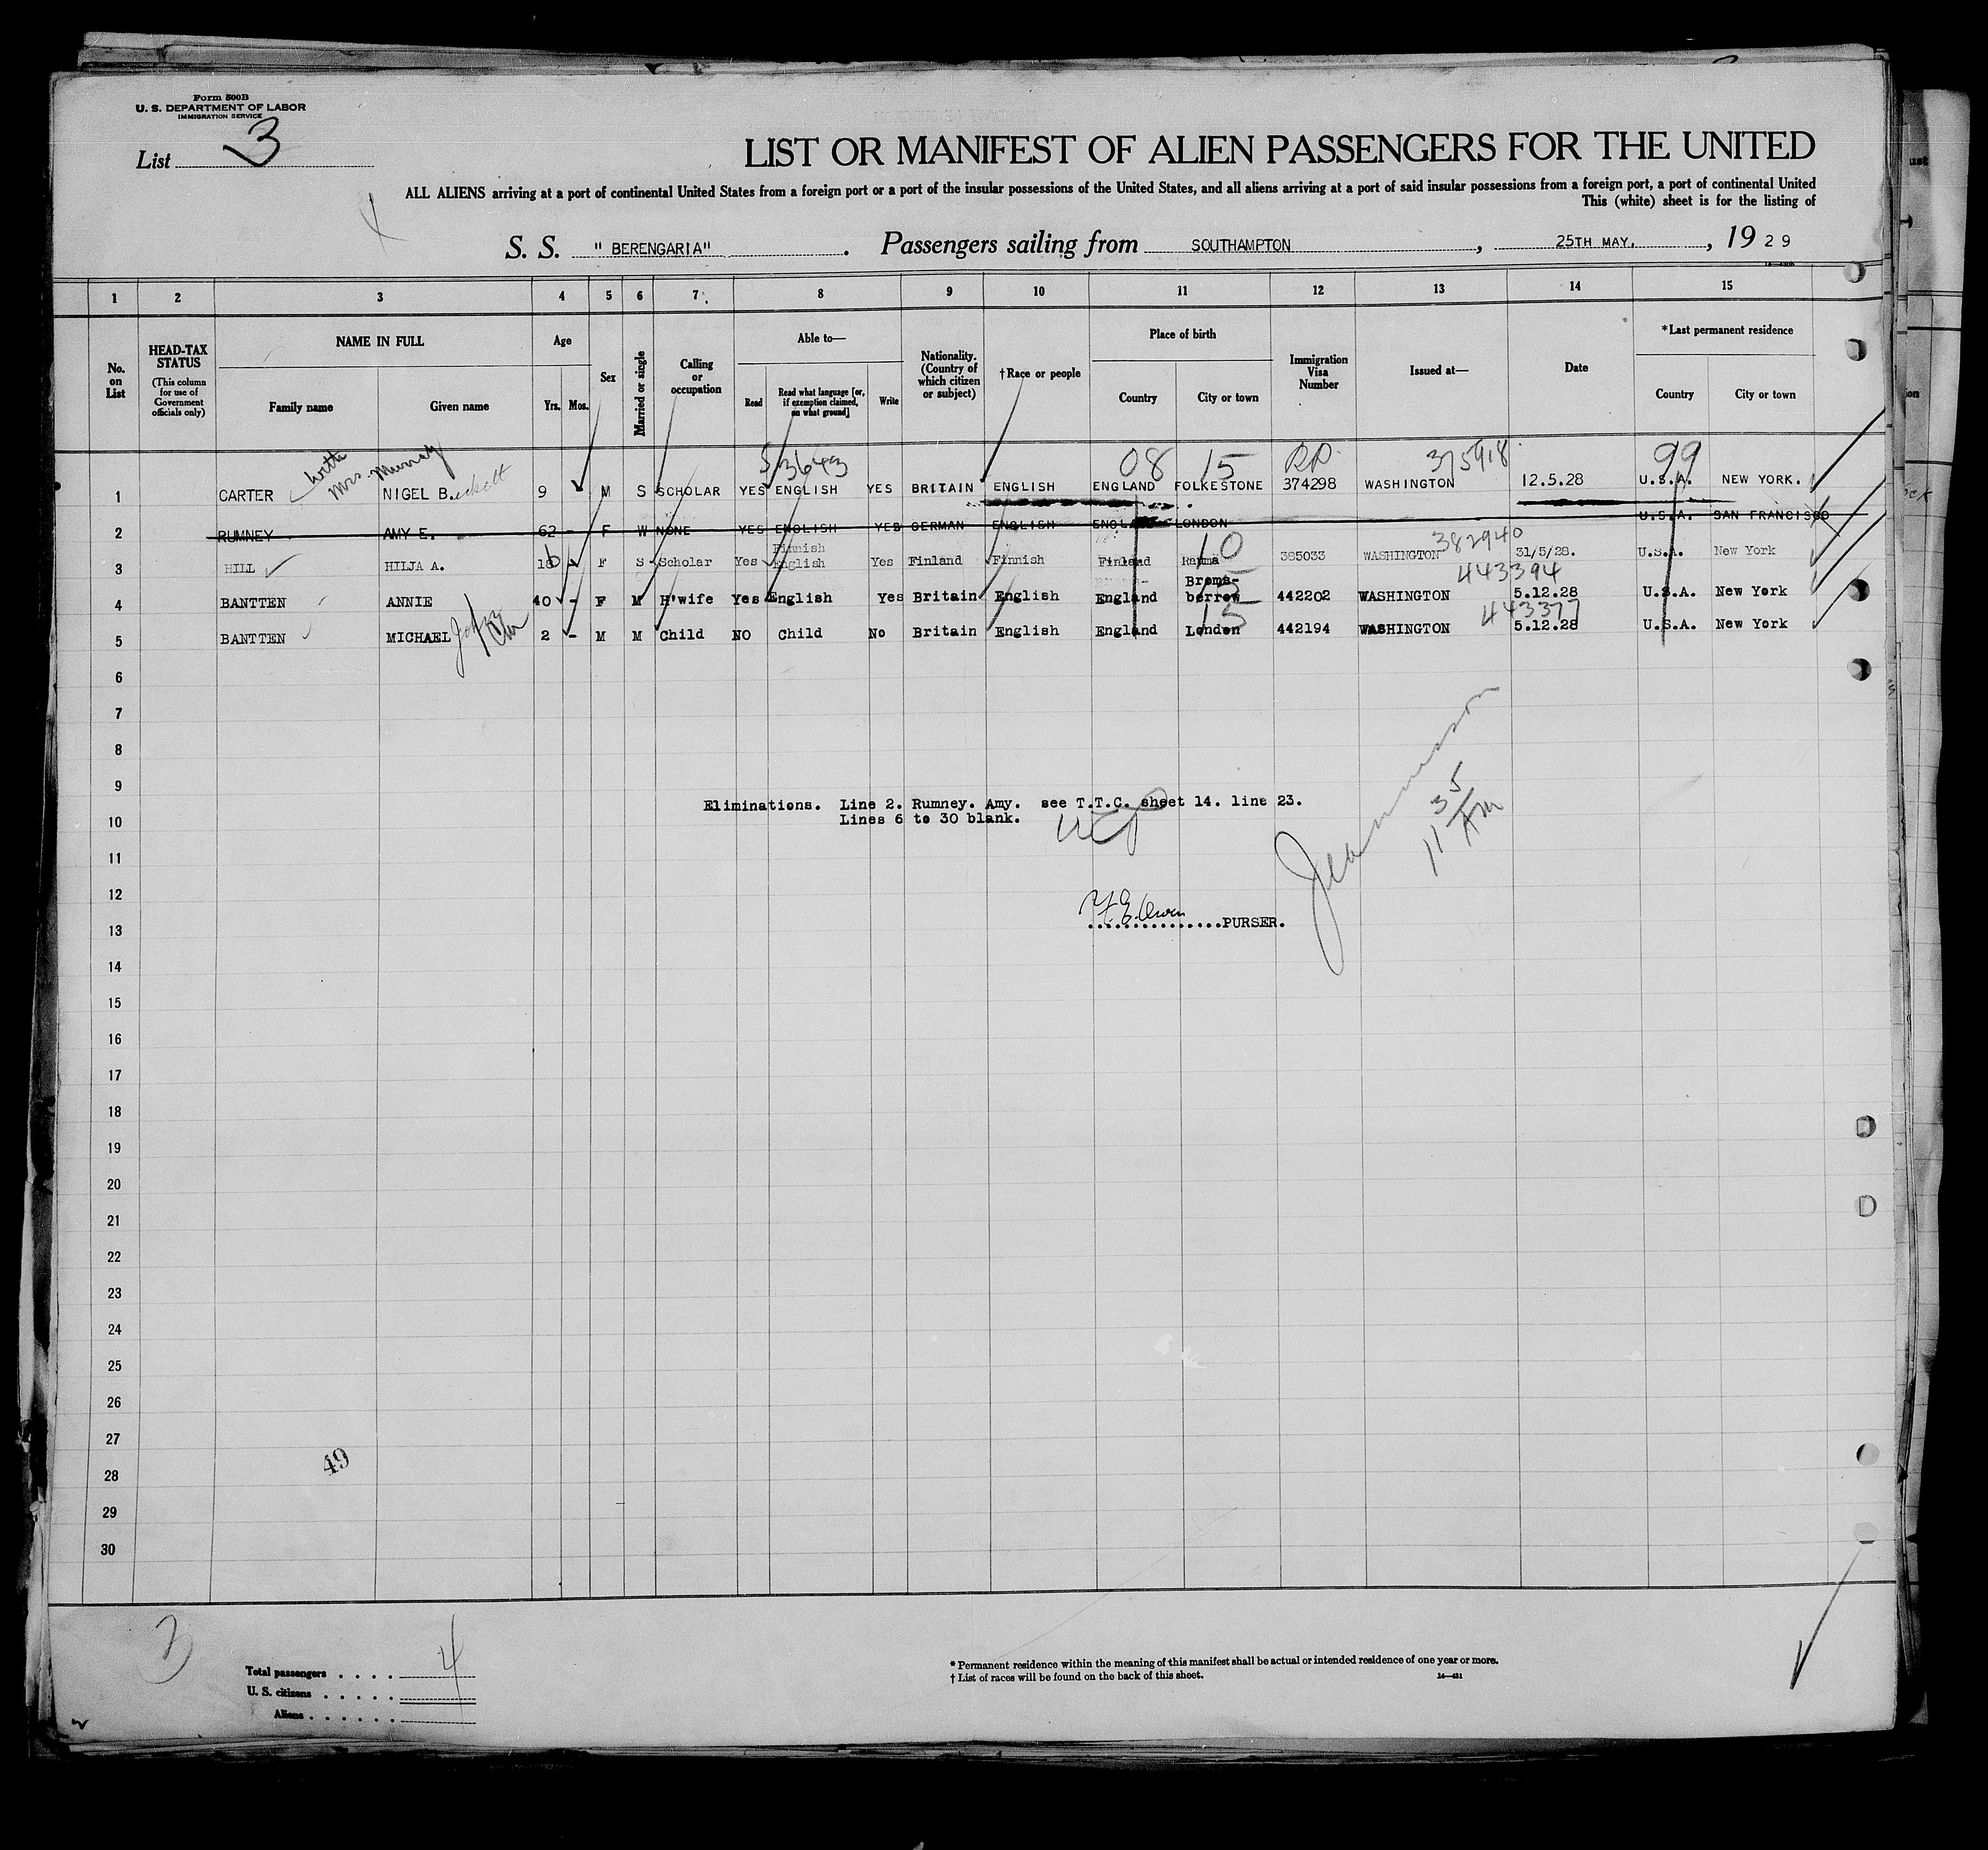 Form 500B
U. S. DEPARTMENT OF LABOR
IMMIGRATION SERVICE
List 3
LIST OR MANIFEST OF ALIEN PASSENGERS FOR THE UNITED
ALL ALIENS arriving at a port of continental United States from a foreign port or a port of the insular possessions of the United States, and all aliens arriving at a port of said insular possessions from a foreign port, a port of continental United
This (white) sheet is for the listing of
S. S. "BERENGARIA". Passengers sailing from SOUTHAMPTON, 25TH MAY., 1929
1 2 3 4 5 6 7 8 9 10 11 12 13 14 15
No. on List
HEAD-TAX STATUS (This column for use of Government officials only)
NAME IN FULL
Family name Given name
Age
Yrs. Mos.
Sex
Married or single
Calling or occupation
Able to—
Read Read what language [or, if exemption claimed, on what ground] Write
Nationality. (Country of which citizen or subject)
†Race or people
Place of birth
Country City or town
Immigration Visa Number
Issued at—
Date
*Last permanent residence
Country City or town
with Mrs. Murray 53643 08 15 RP. 375918 99
1 CARTER NIGEL B. 9 M S SCHOLAR YES ENGLISH YES BRITAIN ENGLISH ENGLAND FOLKESTONE 374298 WASHINGTON 12.5.28 U.S.A. NEW YORK.
2 RUMNEY AMY E. 62 - F W NONE YES ENGLISH YES GERMAN ENGLISH ENGLAND LONDON U.S.A. SAN FRANCISCO
10 382940
3 HILL HILJA A. 16 F S Scholar Yes Finnish English Yes Finland Finnish Finland Rauma 385033 WASHINGTON 31/5/28. U.S.A. New York
443394
4 BANTTEN ANNIE 40 - F M H'wife Yes English Yes Britain English England Broms-berrow 442202 WASHINGTON 5.12.28 U.S.A. New York
15 443377
5 BANTTEN MICHAEL John 2 - M M Child NO Child No Britain English England London 442194 WASHINGTON 5.12.28 U.S.A. New York
6
7
8
9
Eliminations. Line 2. Rumney. Amy. see T.T.C. sheet 14. line 23.
Lines 6 to 30 blank.
10
11 35 AM
11
12
13
PURSER.
14
15
16
17
18
19
20
21
22
23
24
25
26
27
49
28
29
30
3
Total passengers . . . . 4
U. S. citizens . . . . .
Aliens . . . . . .
* Permanent residence within the meaning of this manifest shall be actual or intended residence of one year or more.
† List of races will be found on the back of this sheet.
14—431